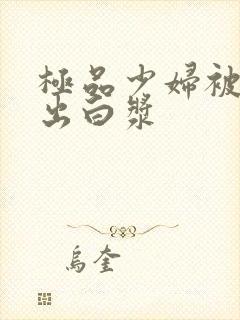 極品少婦被
出白漿
烏奎